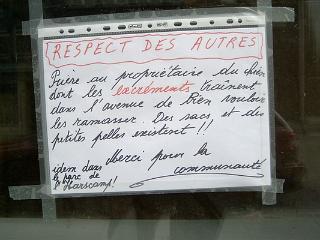 RESPECT DES AUTRES
Prière au propriétaire du chien
dont les lacréments traînent
dans l'avenue de bien vouloir
les ramasser. Des sacs et des
petites pelles existent !!!
Merci pour la
communauté
idem dans
le parc de
l'Harscamp!